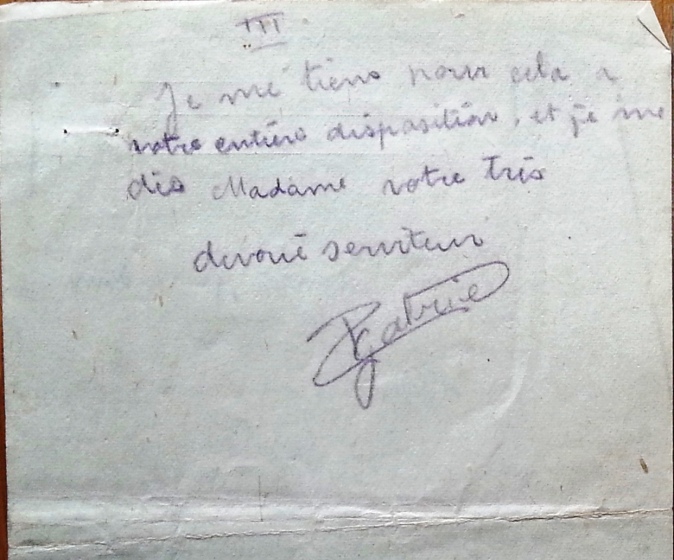 III
Je me tiens pour cela a
votre entière disposition, et je me
dis Madame votre très
devoué serviteur
Gabriel